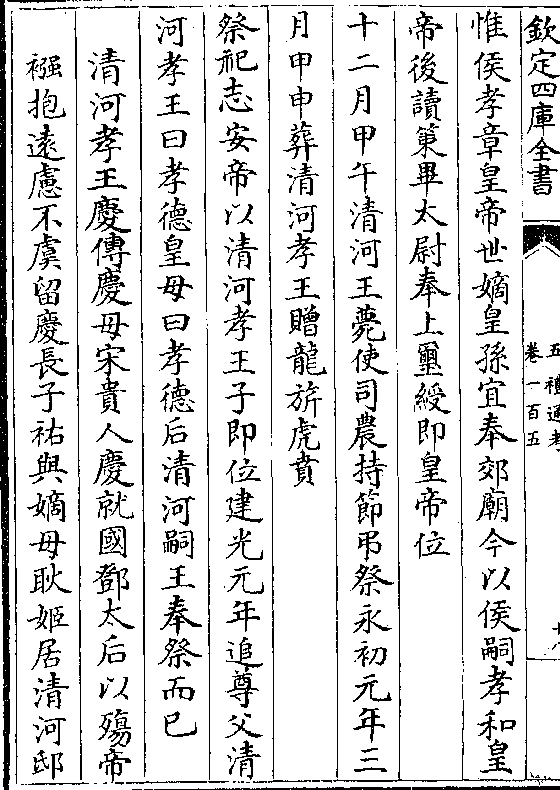 欽定四庫全書
五禮通考
卷一百五
惟侯孝章皇帝世嫡皇孫宜奉郊廟今以侯嗣孝和皇
帝後讀策畢太尉奉上璽綬即皇帝位
十二月甲午清河王薨使司農持節弔祭永初元年三
月甲申葬清河孝王贈龍旂虎賁
祭祀志安帝以清河孝王子即位建光元年追尊父清
河孝王曰孝德皇母曰孝德后清河嗣王奉祭而已
清河孝王慶傳慶母宋貴人慶就國鄧太后以殤帝
襁抱遠慮不虞留慶長子祐與嫡母耿姬居清河邸